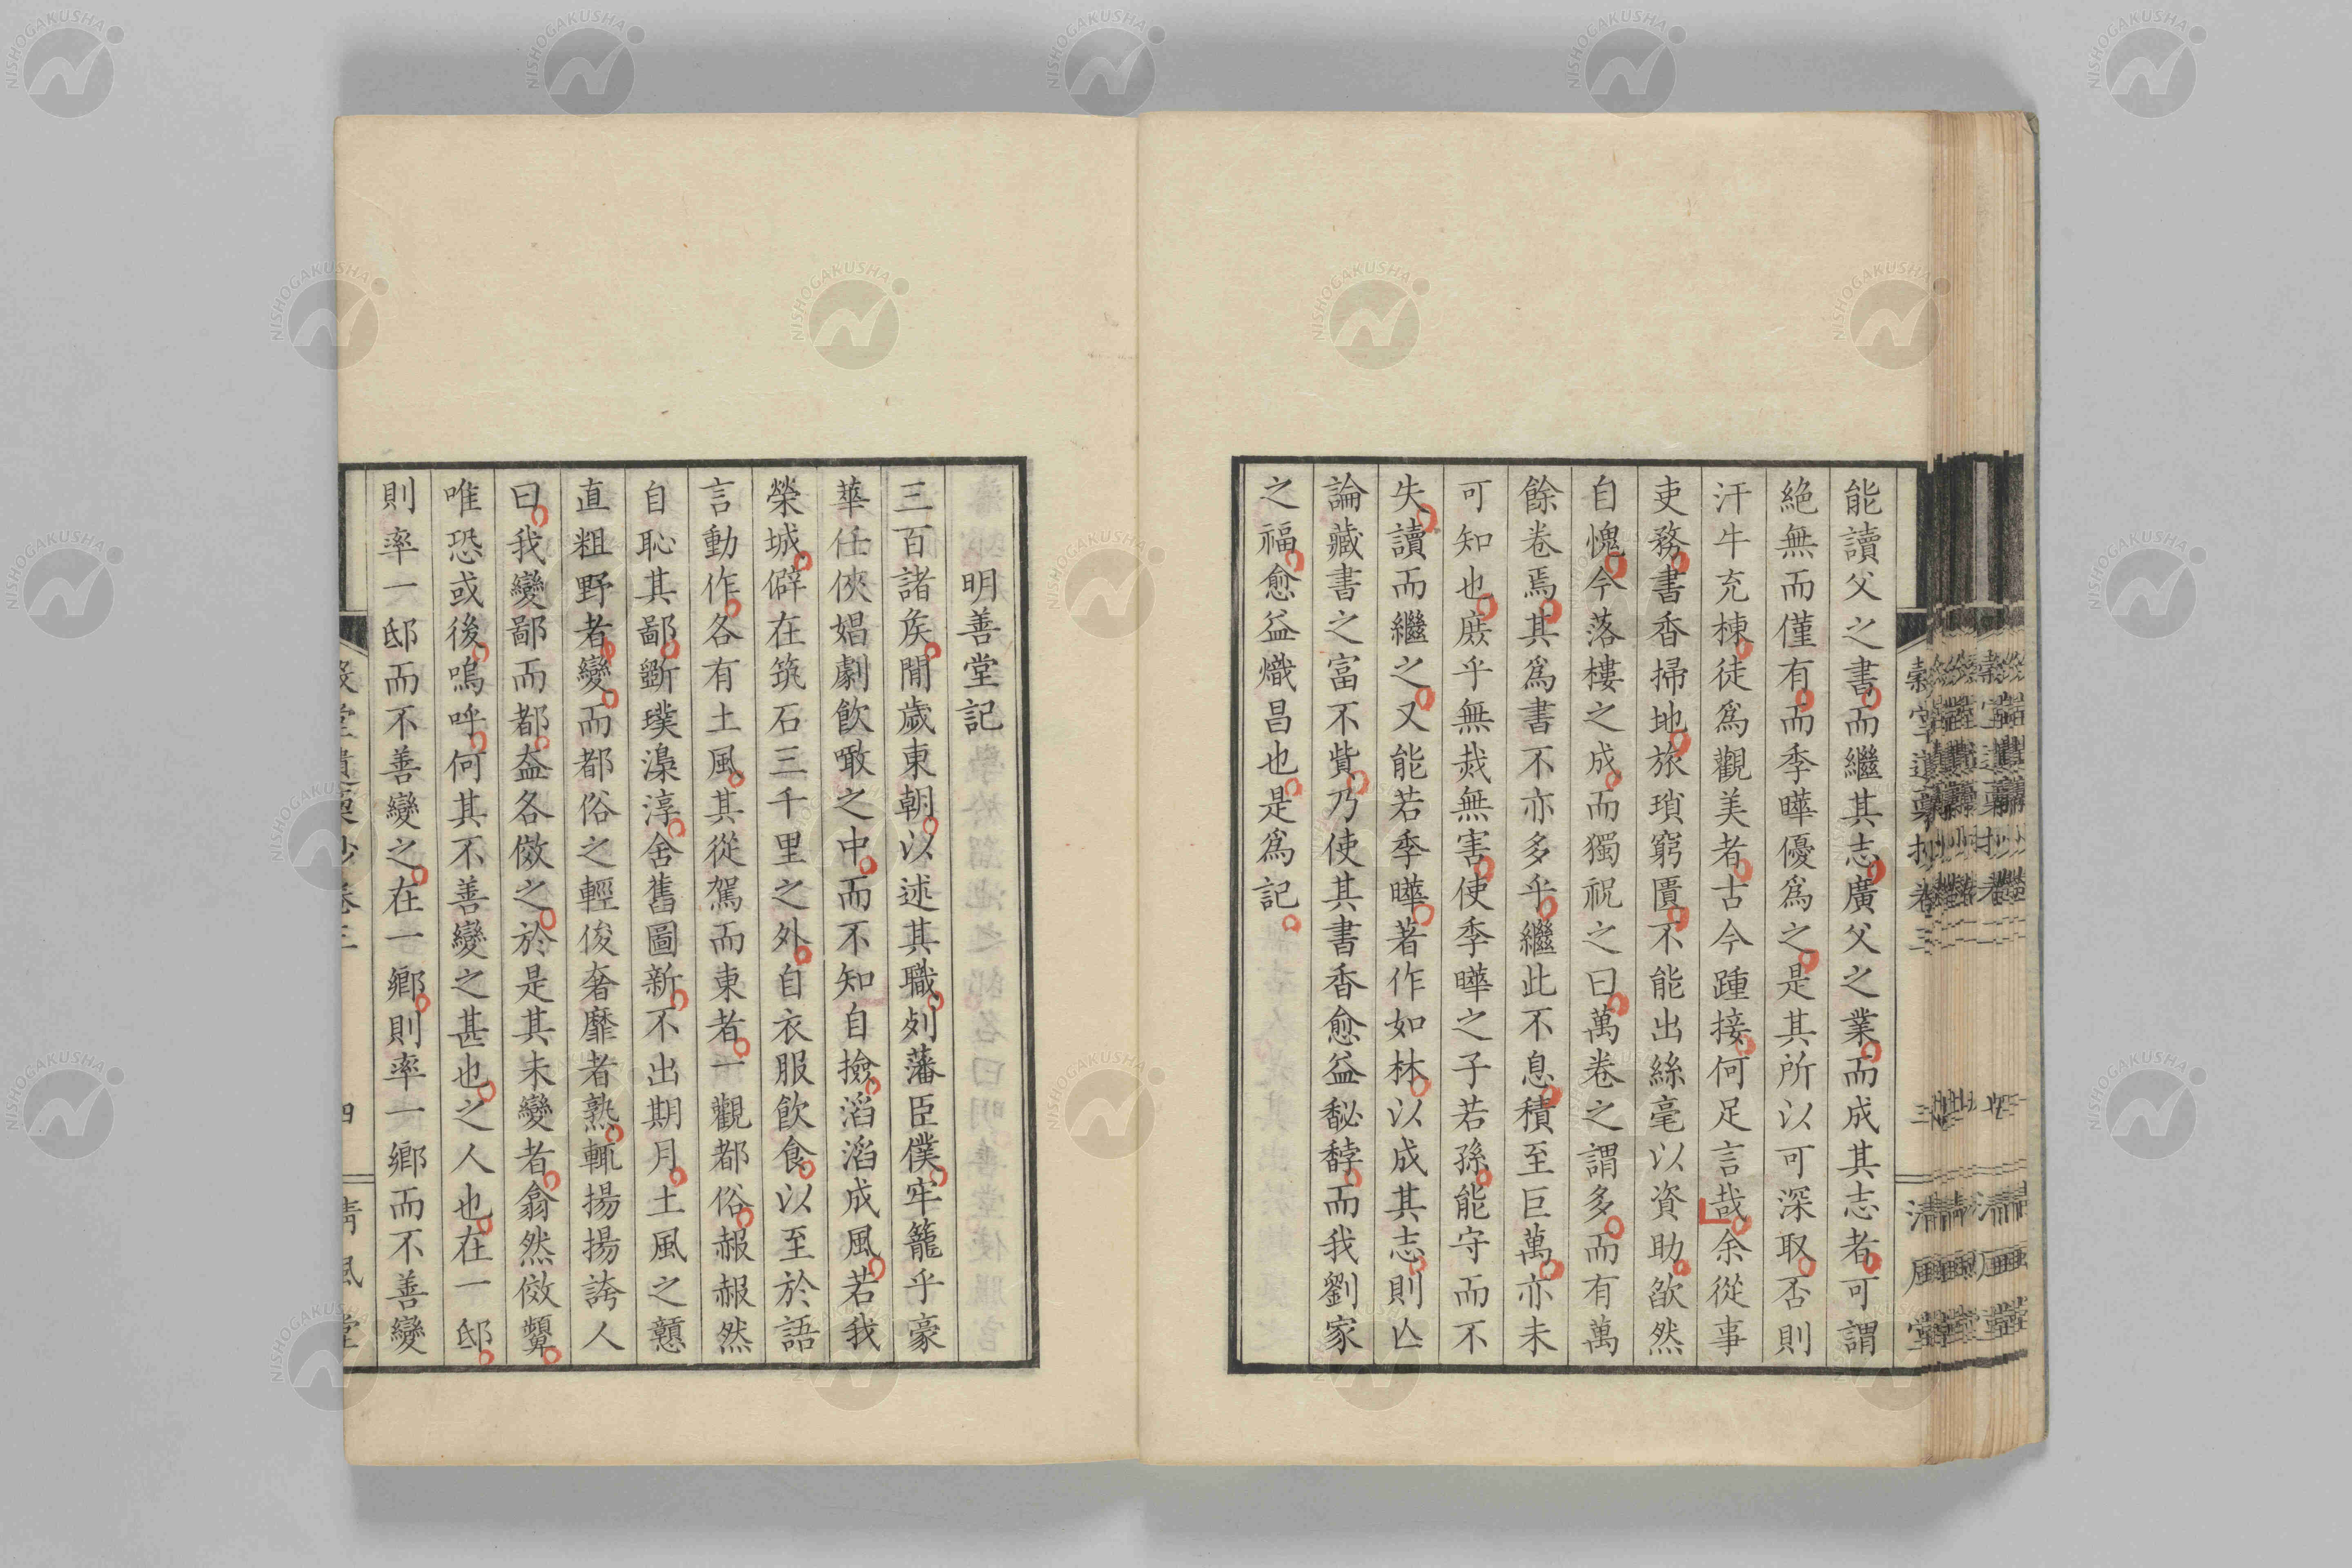 能讀父之書而繼其志廣父之業而成其志者可謂
絕無而僅有而季曄優爲之是其所以可深取否則
汗牛充棟徒爲觀美者古今踵接何足言哉余從事
吏務書香掃地旅瑣窮匱不能出絲毫以資助欿然
自愧今落樓之成而獨祝之曰萬卷之謂多而有萬
餘卷焉其爲書不亦多乎繼此不息積至巨萬亦未
可知也庶乎無烖無害使季曄之子若孫能守而不
失讀而繼之又能若季曄著作如林以成其志則亾
論藏書之富不貲乃使其書香愈益馝馞而我劉家
之福愈益熾昌也是爲記
明善堂記
三百諸矦閒歲東朝以述其職列藩臣僕牢籠乎豪
華任俠娼劇飮噉之中而不知自撿滔滔成風若我
榮城僻在筑石三千里之外自衣服飮食以至於語
言動作各有土風其從駕而東者一觀都俗赧赧然
自恥其鄙斲璞澆淳舍舊圖新不出期月土風之戇
直粗野者變而都俗之輕俊奢靡者熟輒揚揚誇人
曰我變鄙而都葢各傚之於是其未變者翕然傚顰
唯恐或後嗚呼何其不善變之甚也之人也在一邸
則率一邸而不善變之在一鄕則率一鄕而不善變
穀堂遺稾抄卷三 四 淸風堂
NISHOGAKUSHA